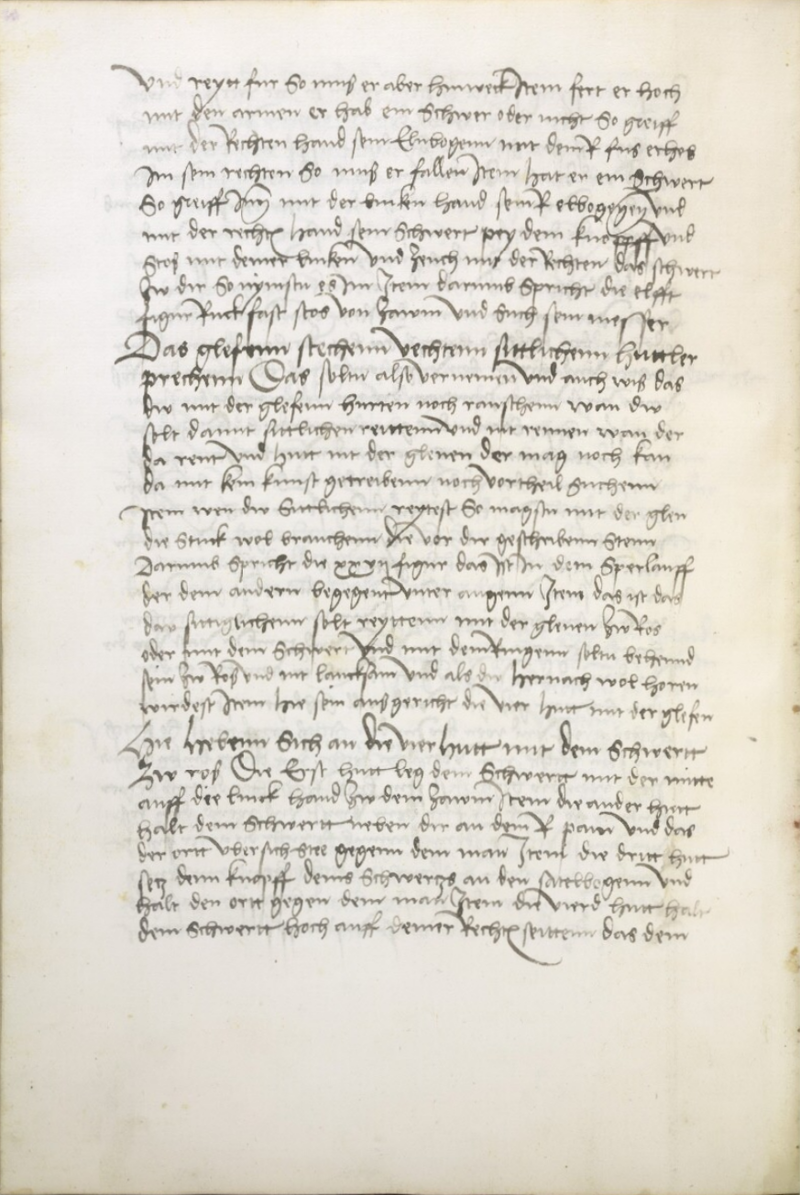 Vnd reytt fur So mus er aber hinweck Item fert er hoch
mit den armen er hab ein Schwer oder nicht So greiff
mit der Rechten hand sein Elnbogenn mit dem R fus erheb
Im sein rechten So mus er fallen Item hat er ein Schwert
So greiff Im mit der lincken hand sein R elbogen vnd
mit der recht hand sein Schwert pey dem knopff vnd
Stos mit deiner lincken vnd Zeuch mit der Rechten das schwert
Zw dir So nymstu es im Item darumb Spricht die elfft
figur Ruck fast stos von Zawm vnd Such sein messer
Das glefenn stechenn vechtenn sittlichenn huttler
prechenn Das soltu also vernemen vnd auch wis das
dw mit der glefenn hurten noch rauschenn wan dw
solt damit sittlichen reittenn vnd nit rennen wan der
da rent vnd hutt mit der glenen der mag noch kan
da mit kein kunst getreibenn noch vortheil suchenn
Item wen dw Sittlichenn reytest So magstu mit der glen
die Stuck wol brauchenn die vor dir geschribenn Stenn
Darumb Spricht die xxvij figur das ist In dem Sperlauff
der dem andern begegent vnter augenn Item das ist das
dw sittiglichenn solt reyttenn mit der glenen Zw Ros
oder mit dem Schwert vnd mit dem Ringenn soltu behennd
sein Zw Ros vnd nit lancksam vnd als du hernach wol horen
wirdest Item hie sein ausgericht die vier hutt mit der glefen
Hie hebenn Sich an die vier hutt mit dem Schwertt
Zw ros Die Erst hutt leg dein Schwertt mit der mitte
auff die linck hand Zw dem Zawm Item die ander hutt
halt dein Schwertt neben dir an dem R pain vnd das
der ortt vbersich Stee gegenn dem man Item die dritt hutt
setz denn knopff deins Schwerzs an den sattelbogenn vnd
halt den ortt gegen dem man Item die vierd hutt halt
dein Schwertt hoch auff deiner Recht seittenn das dein